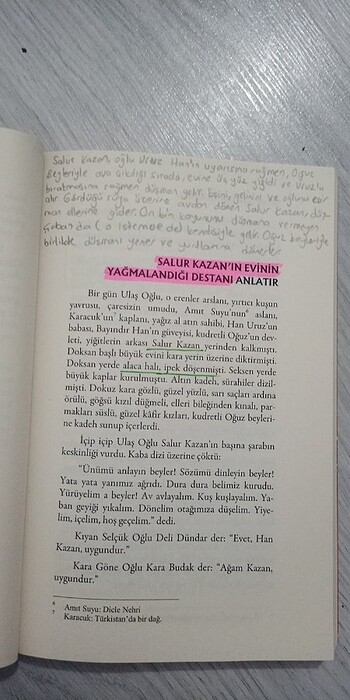 Salur Kazan, oğlu Uruz Han'ın uyarısına rağmen, Oğuz
Beyleriyle ava çıktığı sırada, evine üç yüz yiğidi ve Uruz'u
bıratmasına rağmen düşman gelir. Eşini, gelinini ve oğlunu esir
alır Gördüğü rüya üzerine avdan dönen Salur Kazan, düş-
man ellerine gider. On bin koyununu düşmana vermeyen
Çoban da (o istemese de) kendisiyle gelir. Oğuz beyleriyle
birlikte düşmanı yener ve yurtlarına dönerler
SALUR KAZAN'IN EVİNİN
YAĞMALANDIĞI DESTANI ANLATIR
Bir gün Ulaş Oğlu, o erenler arslanı, yırtıcı kuşun
yavrusu, çaresizin umudu, Amıt Suyu'nun⁶ aslanı,
Karacuk'un⁷ kaplanı, yağız al atın sahibi, Han Uruz'un
babası, Bayındır Han'ın güveyisi, kudretli Oğuz'un dev-
leti, yiğitlerin arkası Salur Kazan yerinden kalkmıştı.
Doksan başlı büyük evini kara yerin üzerine diktirmişti.
Doksan yerde alaca halı, ipek döşenmişti. Seksen yerde
büyük kaplar kurulmuştu. Altın kadeh, sürahiler dizil-
mişti. Dokuz kara gözlü, güzel yüzlü, sarı saçları ardına
örülü, göğsü kızıl düğmeli, elleri bileğinden kınalı, par-
makları süslü, güzel kâfir kızları, kudretli Oğuz beyleri-
ne kadeh sunup içerlerdi.
İçip içip Ulaş Oğlu Salur Kazan'ın başına şarabın
keskinliği vurdu. Kaba dizi üzerine çöktü:
"Ünümü anlayın beyler! Sözümü dinleyin beyler!
Yata yata yanımız ağrıdı. Dura dura belimiz kurudu.
Yürüyelim a beyler! Av avlayalım. Kuş kuşlayalım. Ya-
ban geyiği yıkalım. Dönelim otağımıza düşelim. Yiye-
lim, içelim, hoş geçelim." dedi.
Kıyan Selçük Oğlu Deli Dündar der: "Evet, Han
Kazan, uygundur."
Kara Göne Oğlu Kara Budak der: "Ağam Kazan,
uygundur."
6 Amıt Suyu: Dicle Nehri
7 Karacuk: Türkistan'da bir dağ.